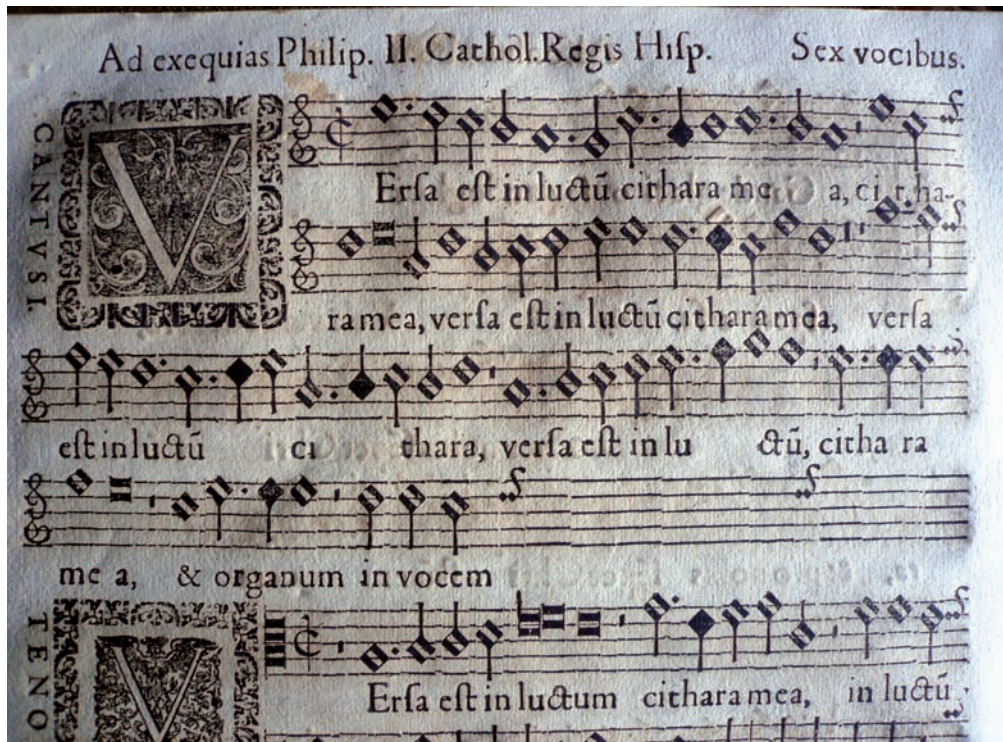 Ad exequias Philip. II. Cathol. Regis Hiſp. Sex vocibus.
CANTVS I.
VErſa eſt in luctū cithara me a, citha-
ra mea, verſa eſt in luctū cithara mea, verſa
eſt in luctū ci thara, verſa eſt in lu ctū, citha ra
me a, & organum in vocem
TENO
VErſa eſt in luctum cithara mea, in luctū